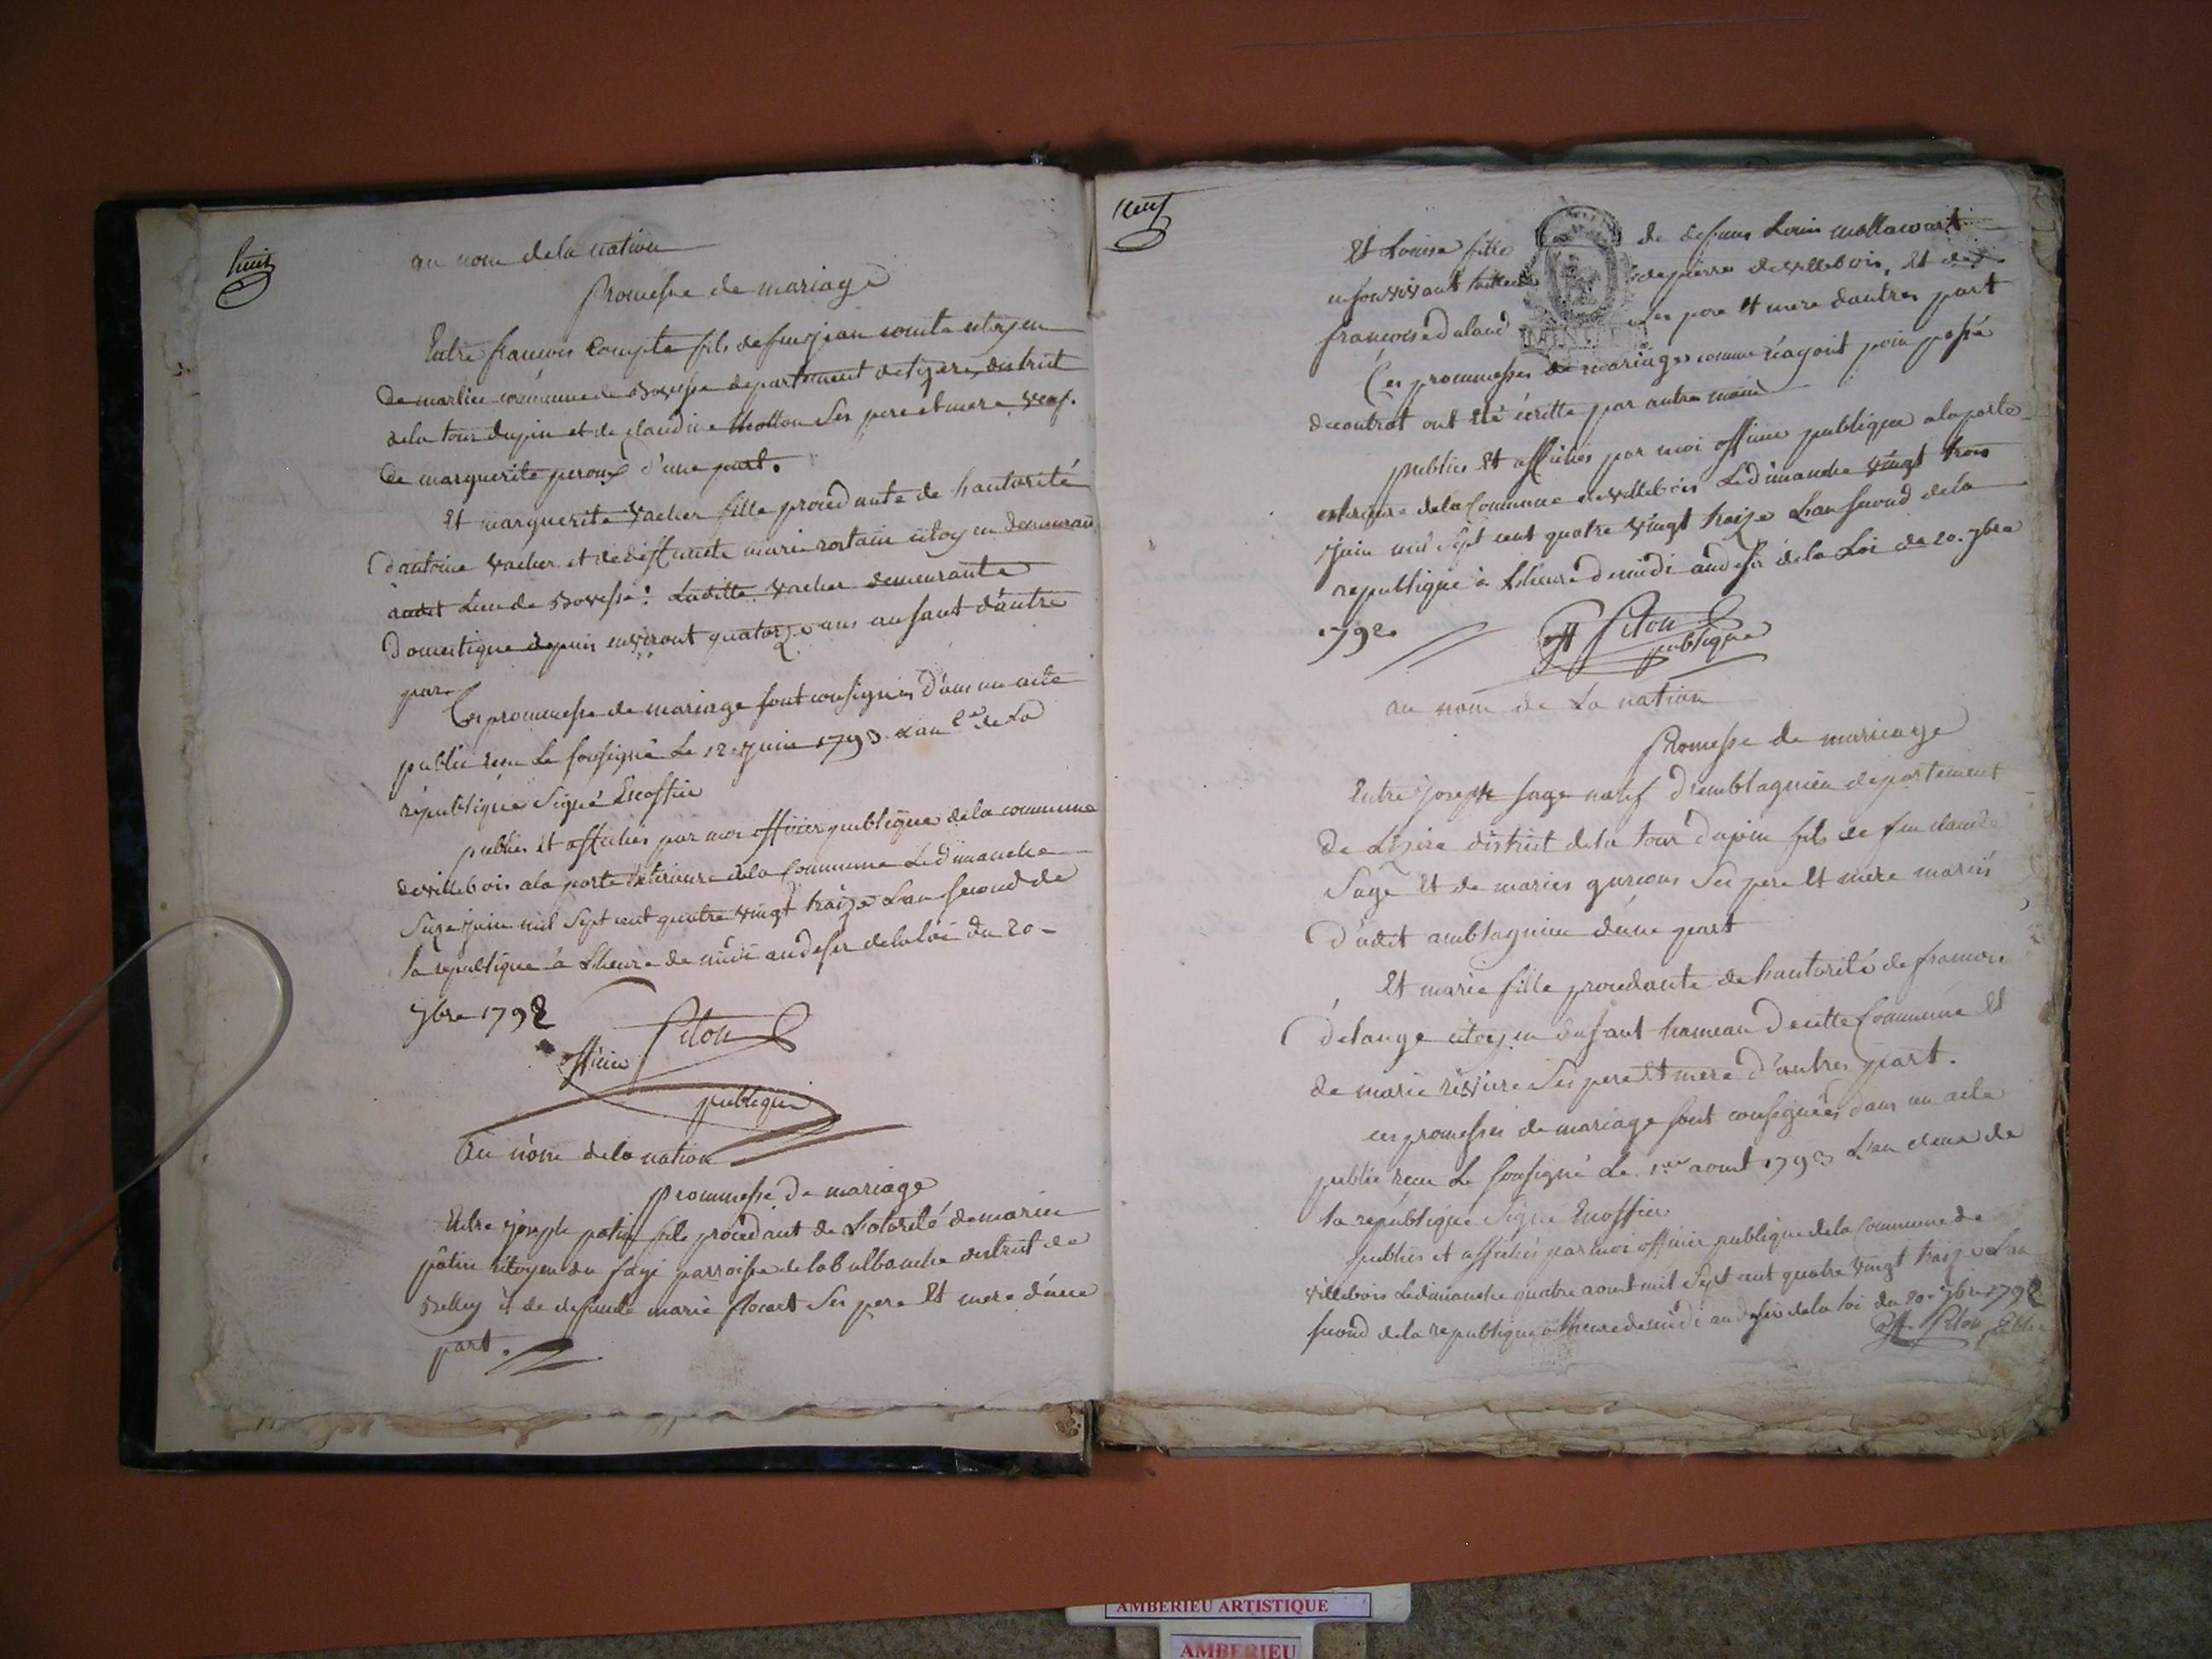 huit
au nom de la nation
Promesse de mariage
Entre francois Compte fils de feu jean comte citoyen
de marlieu commune de Bovesse departement de lizere, district
de la tour dupin et de claudine Mollon Ses pere et mere veuf.
de marguerite peroux d'une part.
Et marguerite vacher fille procedante de hautorité
d'antoine vacher et de deffuncte marie rostain citoyen demeurans
audit Lieu de Bovesse: Laditte vacher demeurante
domestique depuis environt quatorze ans au saut d'autre
par
Ces prommesse de mariage sont consignées dans un acte
public recu Le sousigné Le 12 juin 1793 Lan 2e de La
république Signé Escoffier
publies et affichés par moi officier publique de la commune
de villebois a la porte exterieure de la Commune Le dimanche
Seize juin mil Sept cent quatre vingt traize Lan second de
la republique à Lheure de midi au desir de la loi du 20
7bre 1792
Piton
officier
publique
Au nom de la nation
prommesse de mariage
Entre joseph patin fils procedant de Lotorité de marin
pâtin citoyen du fays parroisse de la Balbanche district de
Belley et de defunte marie flocart Ses pere Et mere d'une
part.
neuf
Et Louise fille de defuns Louis mollawart
en son vivant tailleur de pierres de villebois, Et de
francoise dulac Ses pere Et mere d'autres part
Ces prommesses de mariages comme n'ayant poin passé
de contrat ont été écritte par autre main
publies Et affichés par moi officier publique a la porte
exterieure de la Commune de villebois Le dimanche vingt trois
juin mil Sept cent quatre vingt traize Lan second de la
republique à Lheure de midi au desir de la Loi du 20. 7bre
1792.
off Piton
publique
au nom de La nation
Promesse de mariage
Entre joseph sage natif d'emblagnieu departement
de Lizire district de la tour dupin fils de feu claude
Sage Et de maries gurcons Ses pere Et mere mariés
d'udit amblagnieu d'une part
Et marie fille procedante de hautorité de francois
délange citoyen du saut hameau de cette Commune Et
de marie riviere Ses pere Et mere d'autres part.
ces promesses de mariage sont consignées dans un acte
public recu Le sousigné Le 1er aout 1793 L'an deux de
la république Signé Escoffier
publiés et affichés par moi officier publique de la Commune de
villebois Le dimanche quatre aout mil Sept cent quatre vingt traize Lan
second de la republique a Lheure de midi au desir de la loi du 20. 7bre 1792
off. Piton public
AMBERIEU ARTISTIQUE
AMBERIEU